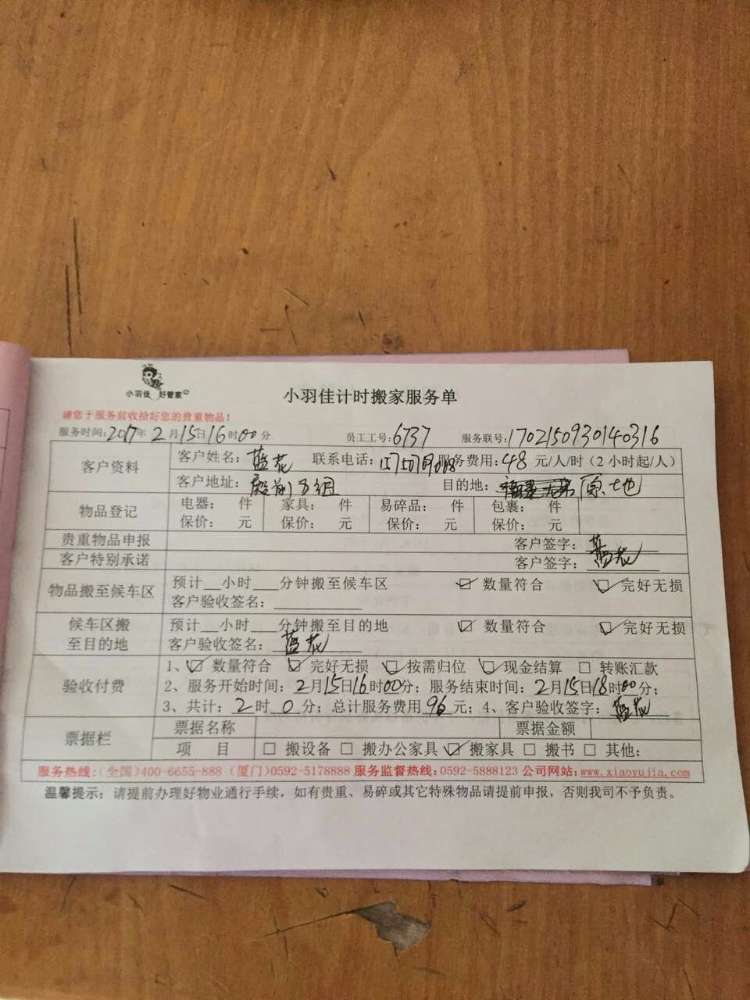 小羽佳 好管家
小羽佳计时搬家服务单
请您于服务前收拾好您的贵重物品！
服务时间:2017年2月15日16时00分 员工工号:6737 服务联号:1702150930140316
客户资料 客户姓名：蓝花 联系电话： 服务费用:48元/人/时（2小时起/人）
客户地址：殿前 目的地：原地
物品登记 电器： 件 家具： 件 易碎品： 件 包裹： 件
保价： 元 保价： 元 保价： 元 保价： 元
贵重物品申报 客户签字：蓝花
客户特别承诺 客户签字：
物品搬至候车区 预计__小时___分钟搬至候车区 ☑ 数量符合 ☑ 完好无损
客户验收签名：
候车区搬至目的地 预计__小时___分钟搬至目的地 ☑ 数量符合 ☑ 完好无损
客户验收签名：蓝花
验收付费 1、☑ 数量符合 ☑ 完好无损 ☑ 按需归位 ☑ 现金结算 □ 转账汇款
2、服务开始时间：2月15日16时00分；服务结束时间：2月15日18时00分；
3、共计：2时0分；总计服务费用96元；4、客户验收签字：蓝花
票据栏 票据名称 票据金额
项 目 □ 搬设备 □ 搬办公家具 ☑ 搬家具 □ 搬书 □ 其他:
服务热线:(全国)400-6655-888 (厦门)0592-5178888 服务监督热线:0592-5888123 公司网站:www.xiaoyujia.com
温馨提示：请提前办理好物业通行手续，如有贵重、易碎或其它特殊物品请提前申报，否则我司不予负责。